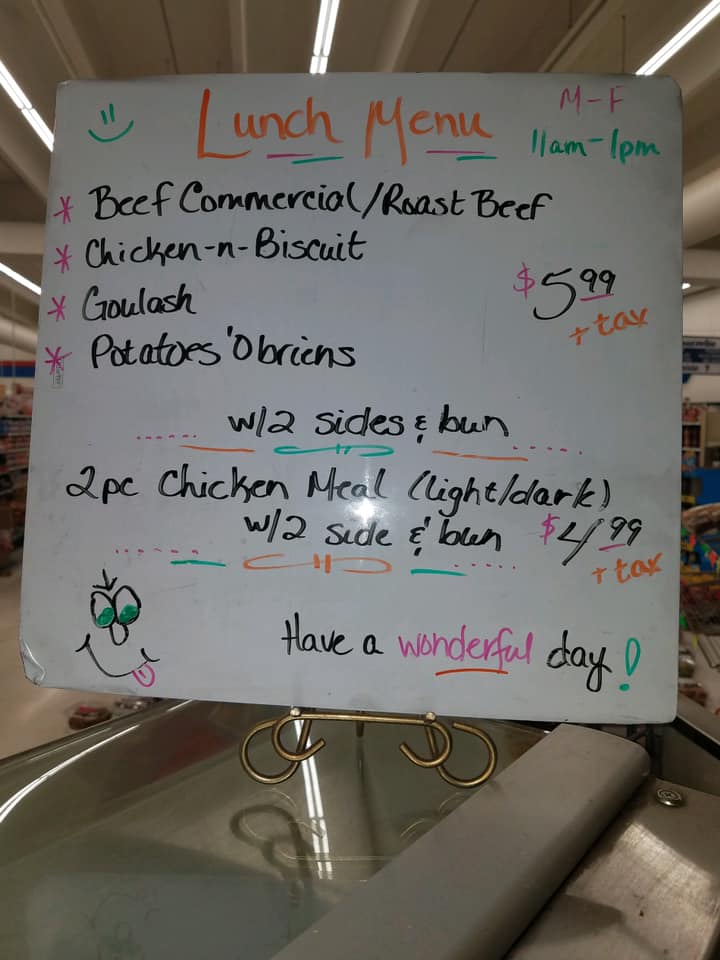 Lunch Menu
M-F
11am-1pm
* Beef Commercial/Roast Beef
* Chicken-n-Biscuit
* Goulash
* Potatoes 'Obriens
$5.99
+ tax
w/2 sides & bun
2pc Chicken Meal (light/dark)
w/2 side & bun $4.99
+ tax
Have a wonderful day!